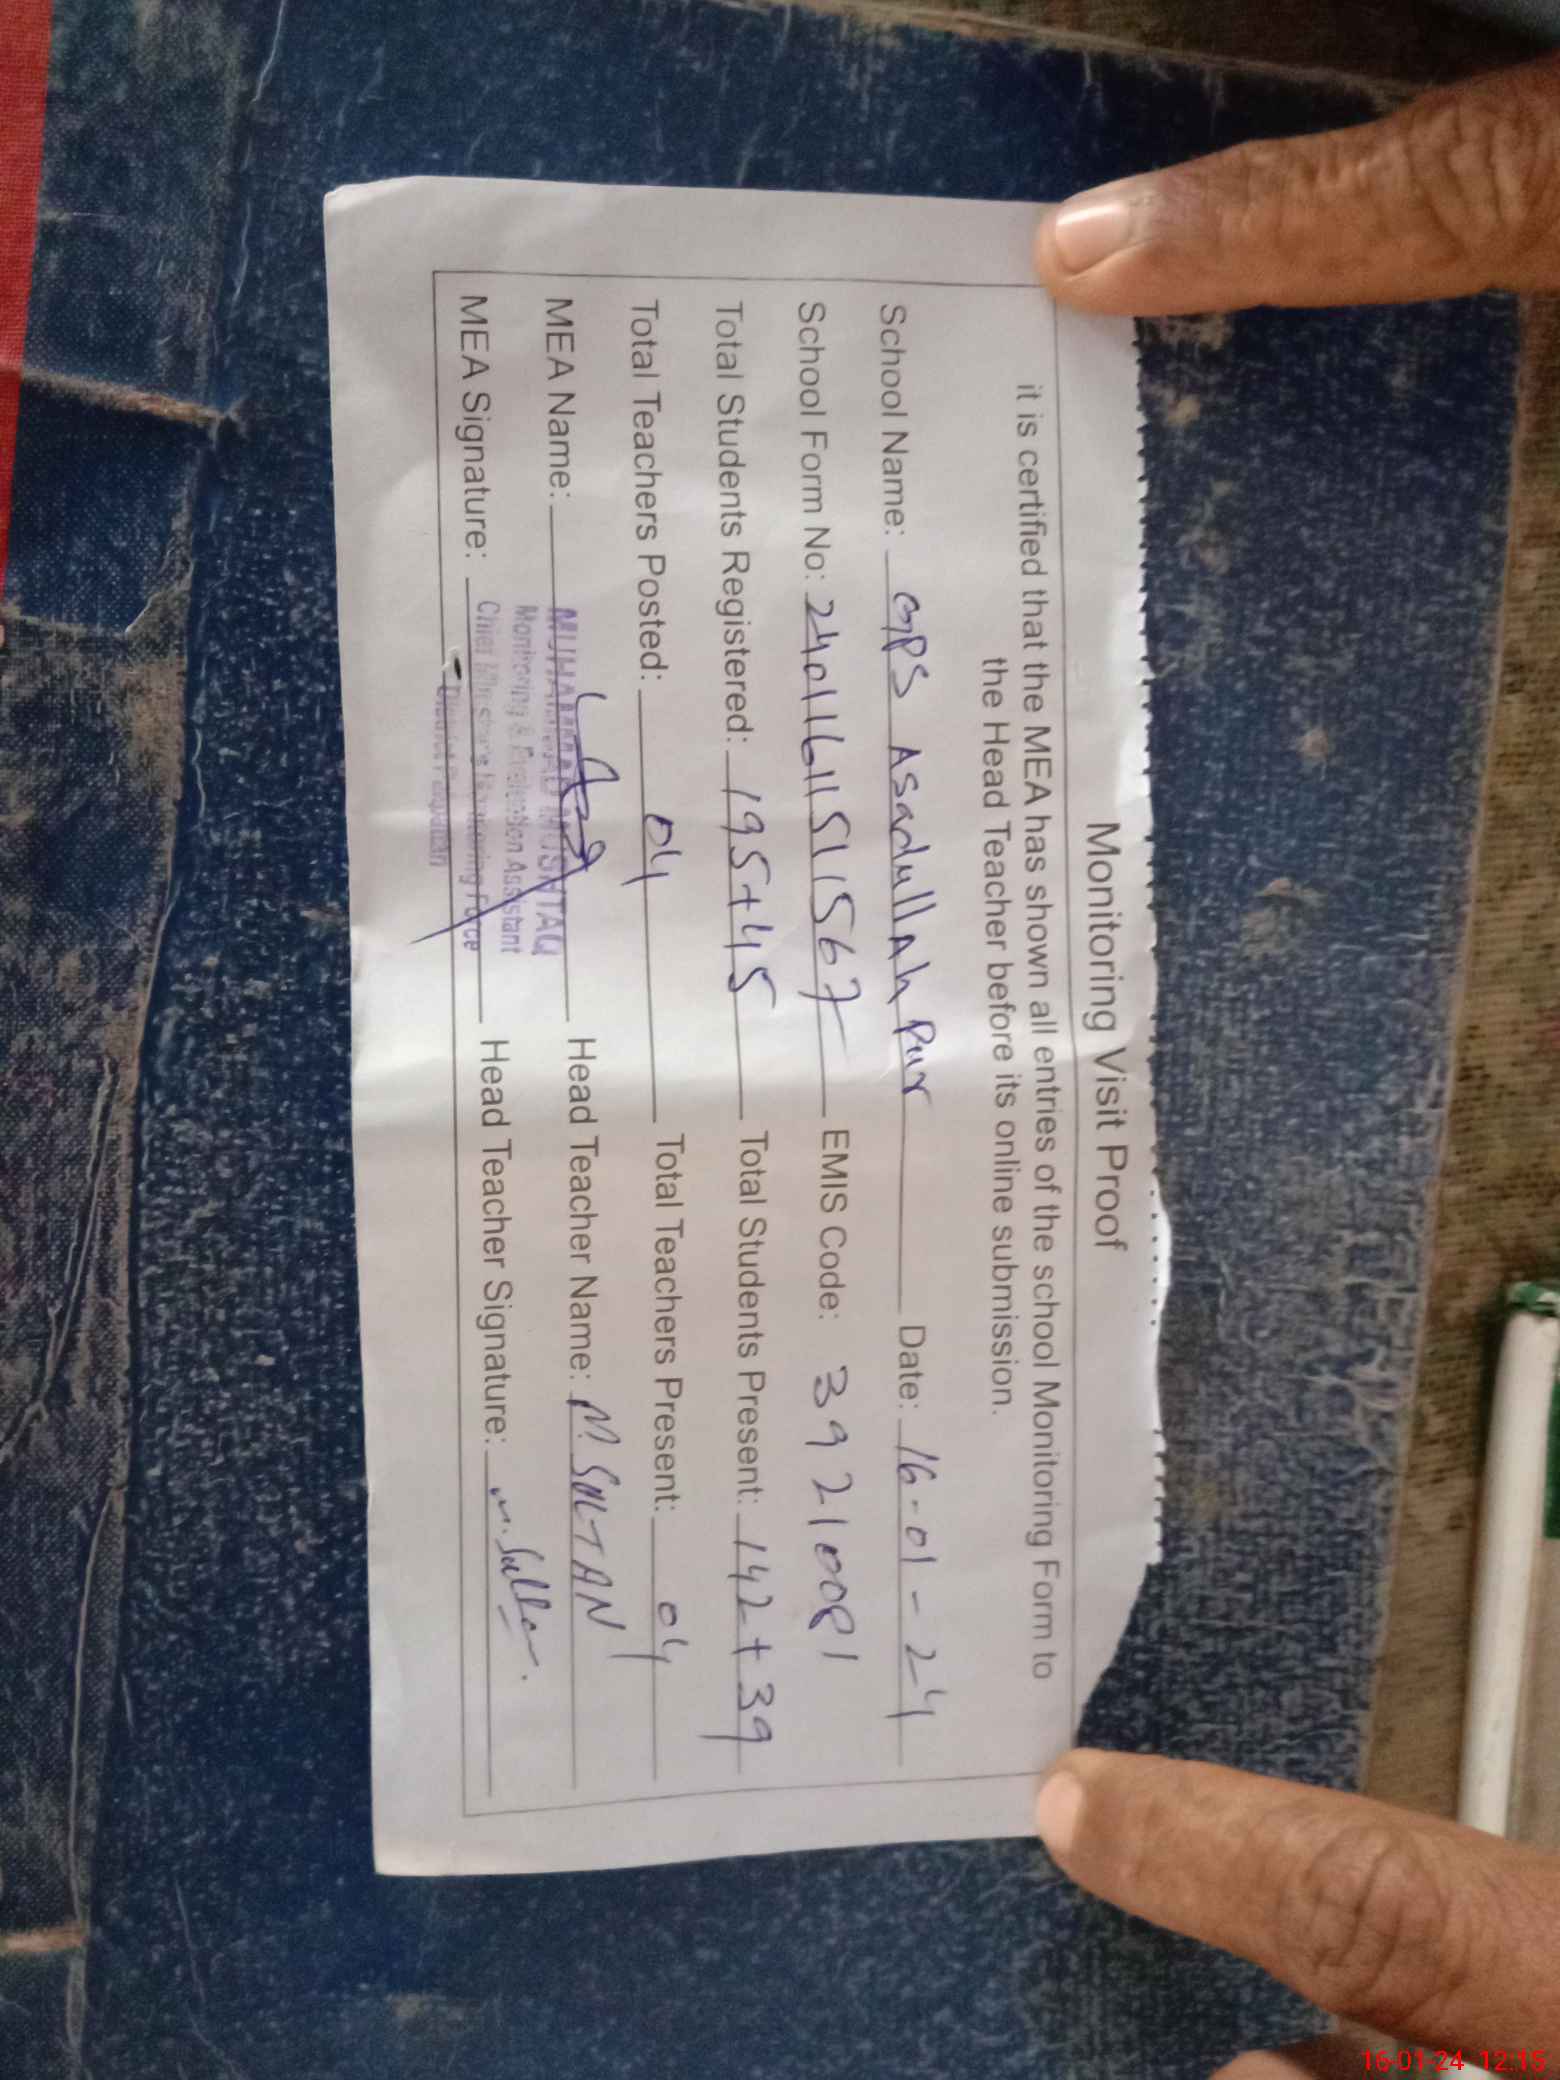 Monitoring Visit Proof
it is certified that the MEA has shown all entries of the school Monitoring Form to
the Head Teacher before its online submission.
School Name: GPS Asadullah Pur Date: 16-01-24
School Form No: 2401161151567 EMIS Code: 39210081
Total Students Registered: 195+45 Total Students Present: 142+39
Total Teachers Posted: 04 Total Teachers Present: 04
MEA Name: MUHAMMAD MUSHTAQ Head Teacher Name: M. SULTAN
Monitoring & Evaluation Assistant
MEA Signature: Chief Minister's Monitoring Force Head Teacher Signature: M. Sultan.
District Pakpattan
16-01-24 12:15